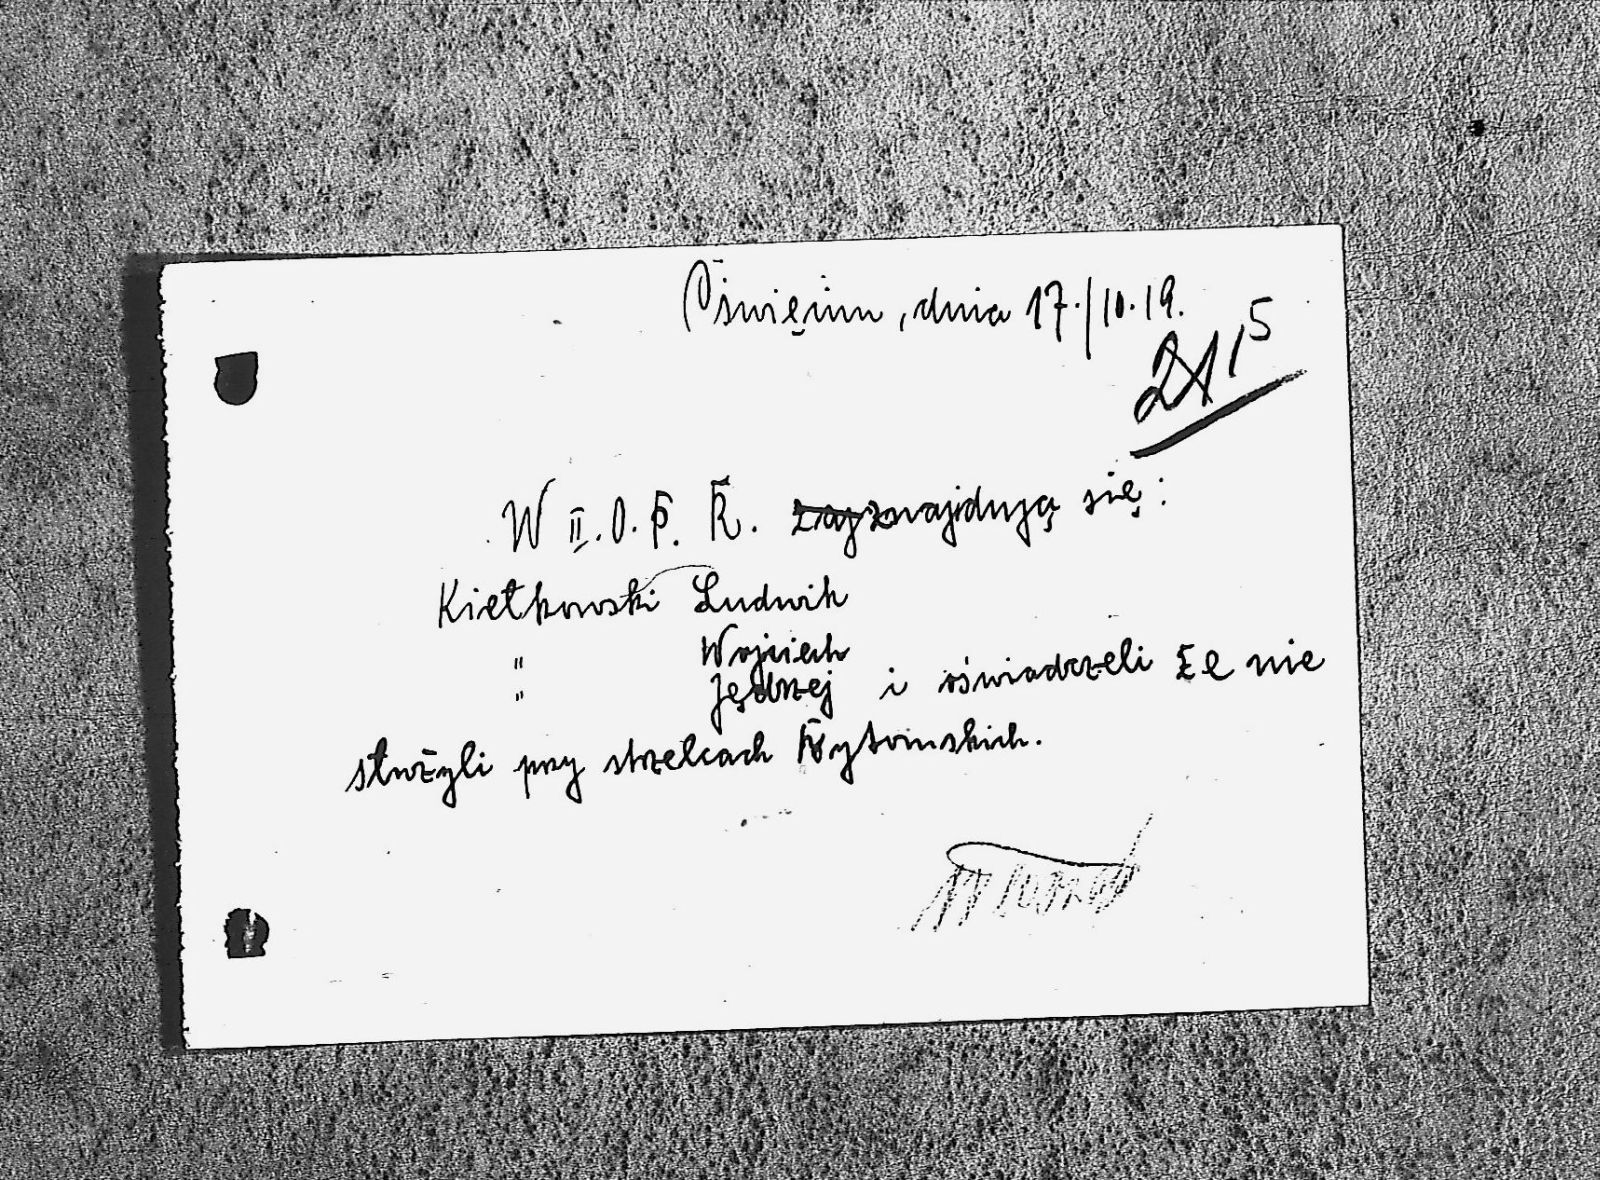 Oświęcim, dnia 17./10.19.
W II. O. P. K. znajdują się:
Kiełkowski Ludwik
" Wojciech
" Jędrzej i oświadczeli że nie
służyli przy strzelcach Bytomskich.